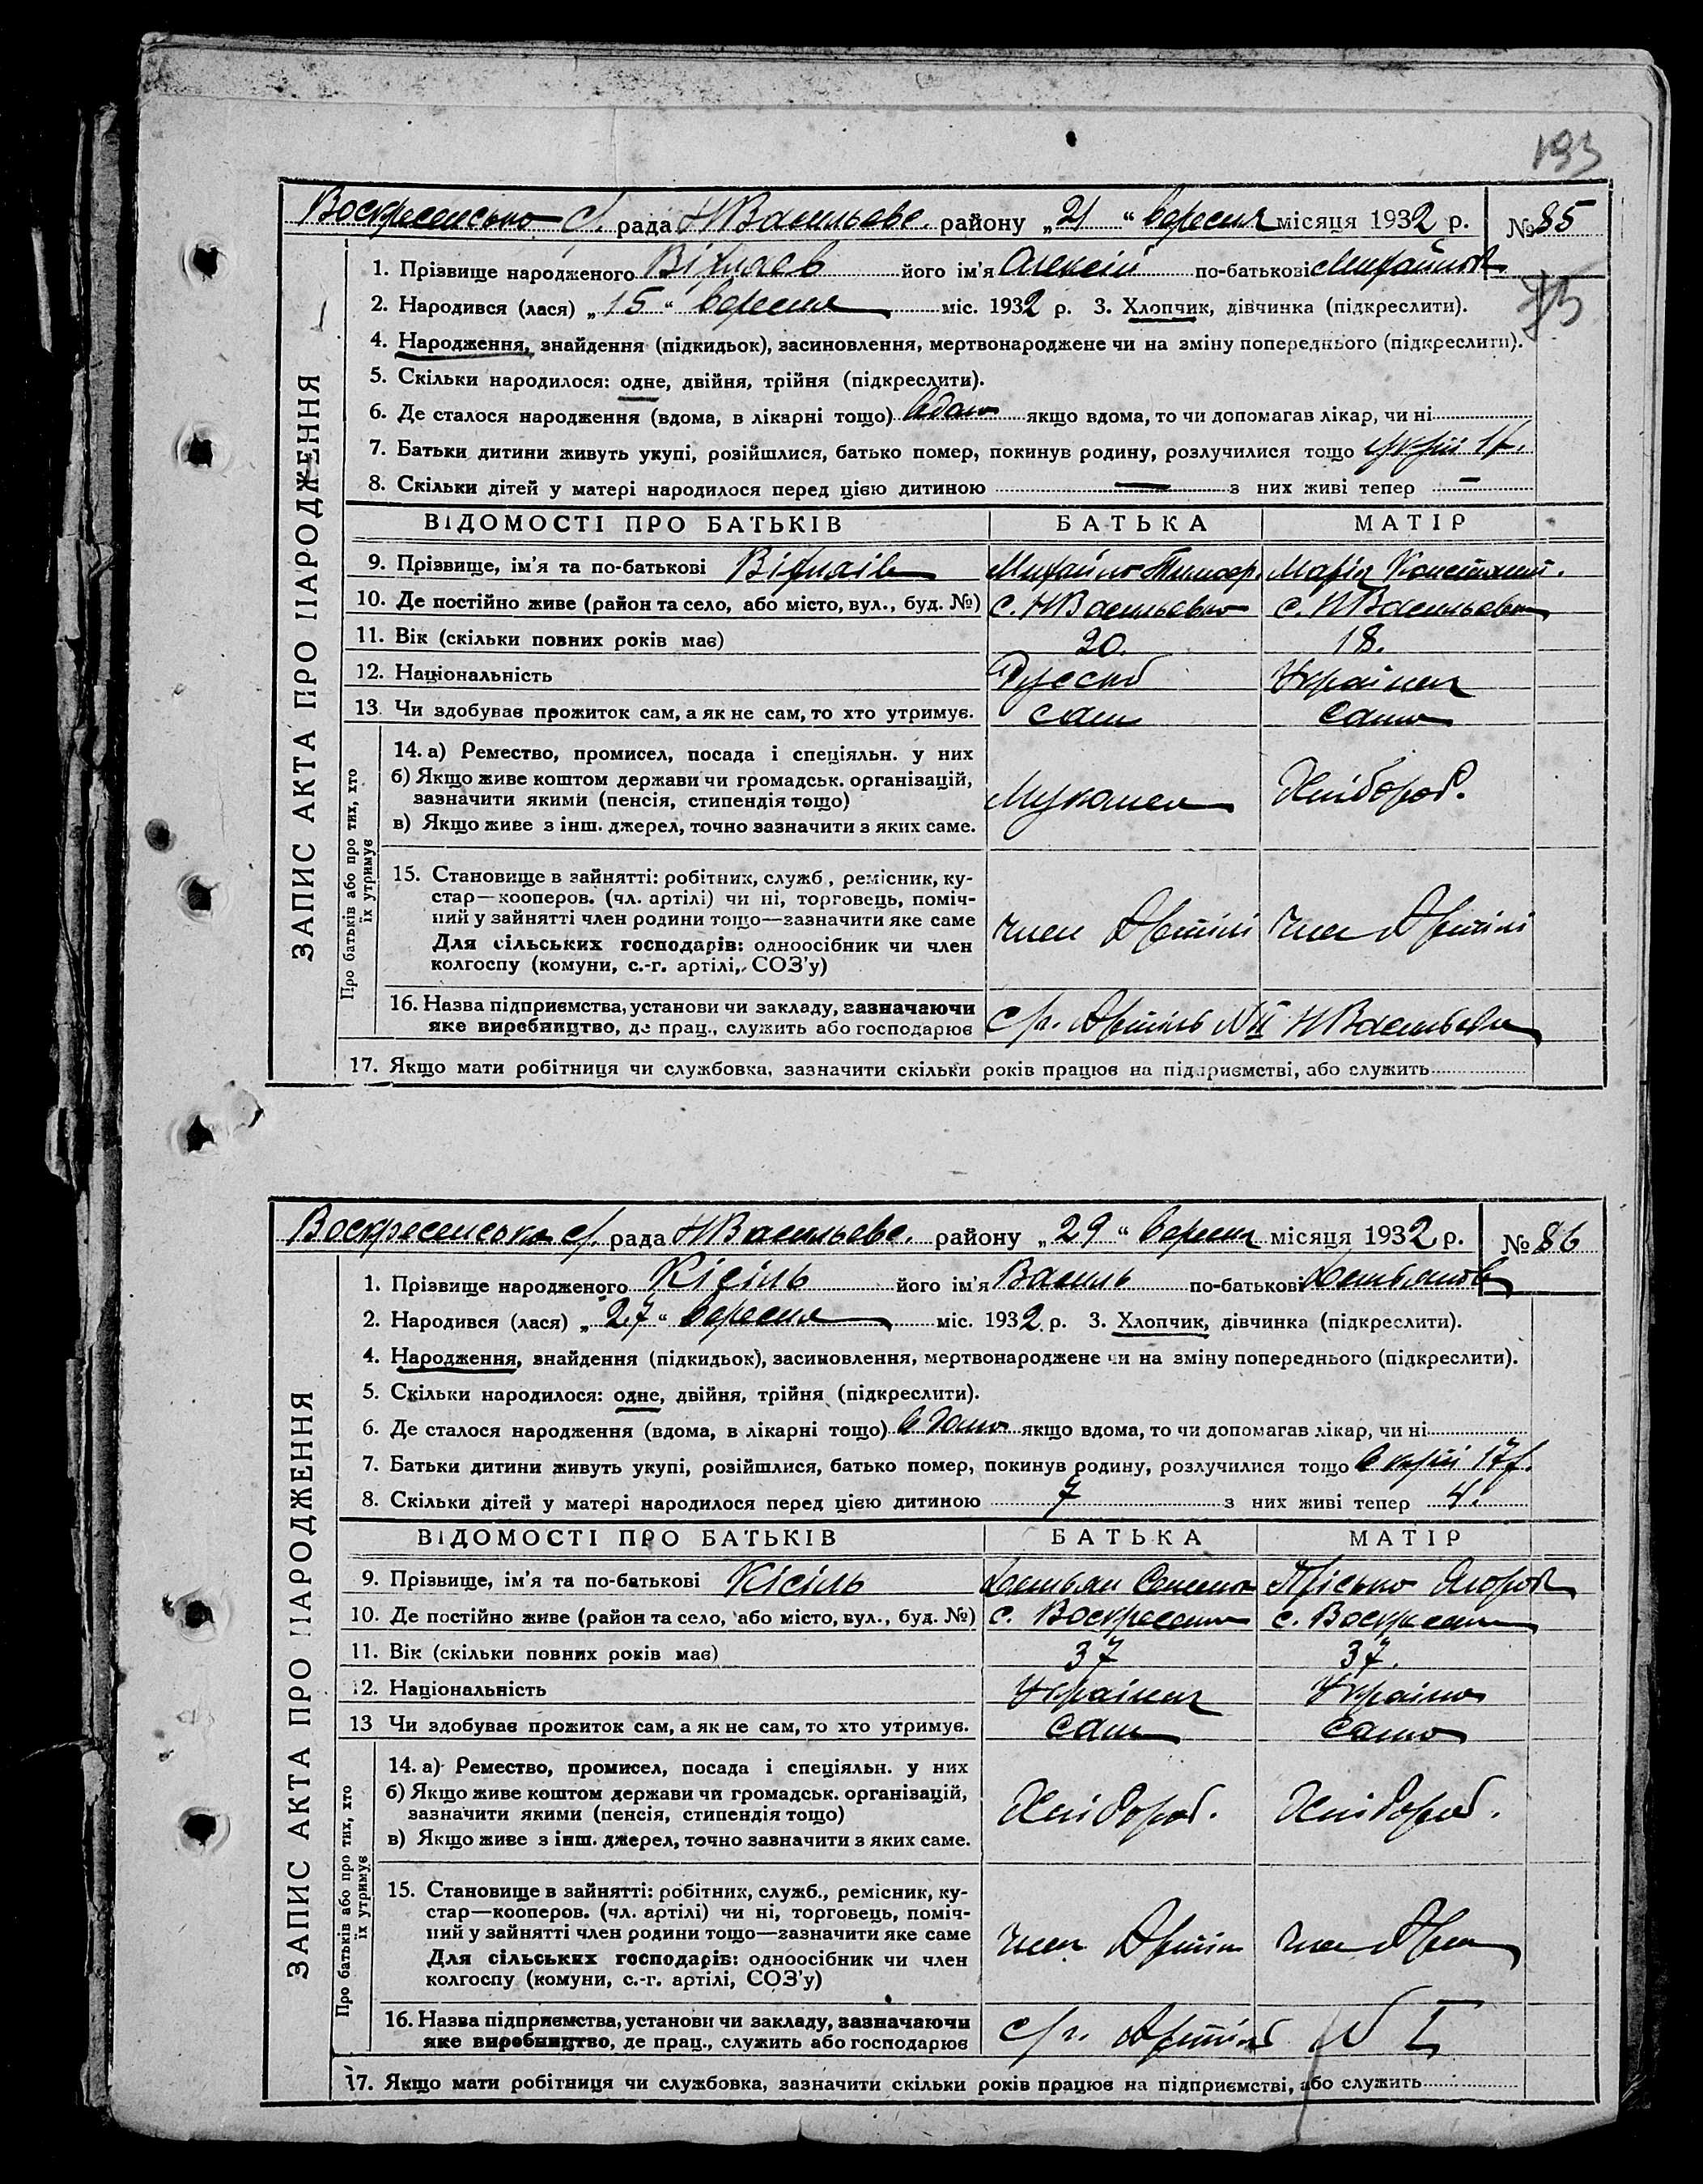 193
Воскресенсько с/. рада НВасильевс. району „21“ вересня місяця 1932 р. № 85
75
ЗАПИС АКТА ПРО НАРОДЖЕННЯ
1. Прізвище народженого його ім'я Алексій по-батькові Михайлов
2. Народився (лася) „15“ вересня міс. 1932 р. 3. Хлопчик, дівчинка (підкреслити).
4. Народження, знайдення (підкидьок), засиновлення, мертвонароджене чи на зміну попереднього (підкреслити).
5. Скільки народилося: одне, двійня, трійня (підкреслити).
6. Де сталося народження (вдома, в лікарні тощо) вдома якщо вдома, то чи допомагав лікар, чи ні
7. Батьки дитини живуть укупі, розійшлися, батько помер, покинув родину, розлучилися тощо
8. Скільки дітей у матері народилося перед цією дитиною — з них живі тепер —
ВІДОМОСТІ ПРО БАТЬКІВ БАТЬКА МАТІР
9. Прізвище, ім'я та по-батькові Михайло Тимофр. Марія Констянтин.
10. Де постійно живе (район та село, або місто, вул., буд. №) с. НВасильевка с. НВасильевка
11. Вік (скільки повних років має) 20. 18.
12. Національність Руский Українка
13. Чи здобував прожиток сам, а як не сам, то хто утримує. сам сама
Про батьків або про тих, хто їх утримує
14. а) Ремество, промисел, посада і спеціяльн. у них
б) Якщо живе коштом держави чи громадськ. організацій,
зазначити якими (пенсія, стипендія тощо) Хлібороб.
в) Якщо живе з інш. джерел, точно зазначити з яких саме.
15. Становище в зайнятті: робітник, служб., ремісник, ку-
стар—кооперов. (чл. артілі) чи ні, торговець, поміч-
ний у зайнятті член родини тощо—зазначити яке саме член Артілі член Артілі
Для сільських господарів: одноосібник чи член
колгоспу (комуни, с.-г. артілі, СОЗ'у)
16. Назва підприємства, установи чи закладу, зазначаючи
яке виробництво, де прац., служить або господарює с/г. Артіль №II НВасильевка
17. Якщо мати робітниця чи службовка, зазначити скільки років працює на підприємстві, або служить
Воскресенська с/. рада НВасильевс. району „29“ вересня місяця 1932 р. № 86
ЗАПИС АКТА ПРО НАРОДЖЕННЯ
1. Прізвище народженого Кісіль його ім'я Василь по-батькові Демьянов
2. Народився (лася) „27“ вересня міс. 1932 р. 3. Хлопчик, дівчинка (підкреслити).
4. Народження, знайдення (підкидьок), засиновлення, мертвонароджене чи на зміну попереднього (підкреслити).
5. Скільки народилося: одне, двійня, трійня (підкреслити).
6. Де сталося народження (вдома, в лікарні тощо) вдома якщо вдома, то чи допомагав лікар, чи ні
7. Батьки дитини живуть укупі, розійшлися, батько помер, покинув родину, розлучилися тощо вкупі 17р.
8. Скільки дітей у матері народилося перед цією дитиною 7 з них живі тепер 4.
ВІДОМОСТІ ПРО БАТЬКІВ БАТЬКА МАТІР
9. Прізвище, ім'я та по-батькові Кісіль Демьян Семенов Пріська Ягоров
10. Де постійно живе (район та село, або місто, вул., буд. №) с. Воскресенка с. Воскресенка
11. Вік (скільки повних років має) 37 37.
12. Національність Українец Українка
13 Чи здобував прожиток сам, а як не сам, то хто утримує. сам сама
Про батьків або про тих, хто їх утримує
14. а) Ремество, промисел, посада і спеціяльн. у них
б) Якщо живе коштом держави чи громадськ. організацій,
зазначити якими (пенсія, стипендія тощо) Хлібороб. Хлібороб.
в) Якщо живе з інш. джерел, точно зазначити з яких саме.
15. Становище в зайнятті: робітник, служб., ремісник, ку-
стар—кооперов. (чл. артілі) чи ні, торговець, поміч-
ний у зайнятті член родини тощо—зазначити яке саме член Артіли член Артіли
Для сільських господарів: одноосібник чи член
колгоспу (комуни, с.-г. артілі, СОЗ'у)
16. Назва підприємства, установи чи закладу, зазначаючи
яке виробництво, де прац., служить або господарює с/г. Артіль № I
17. Якщо мати робітниця чи службовка, зазначити скільки років працює на підприємстві, або служить